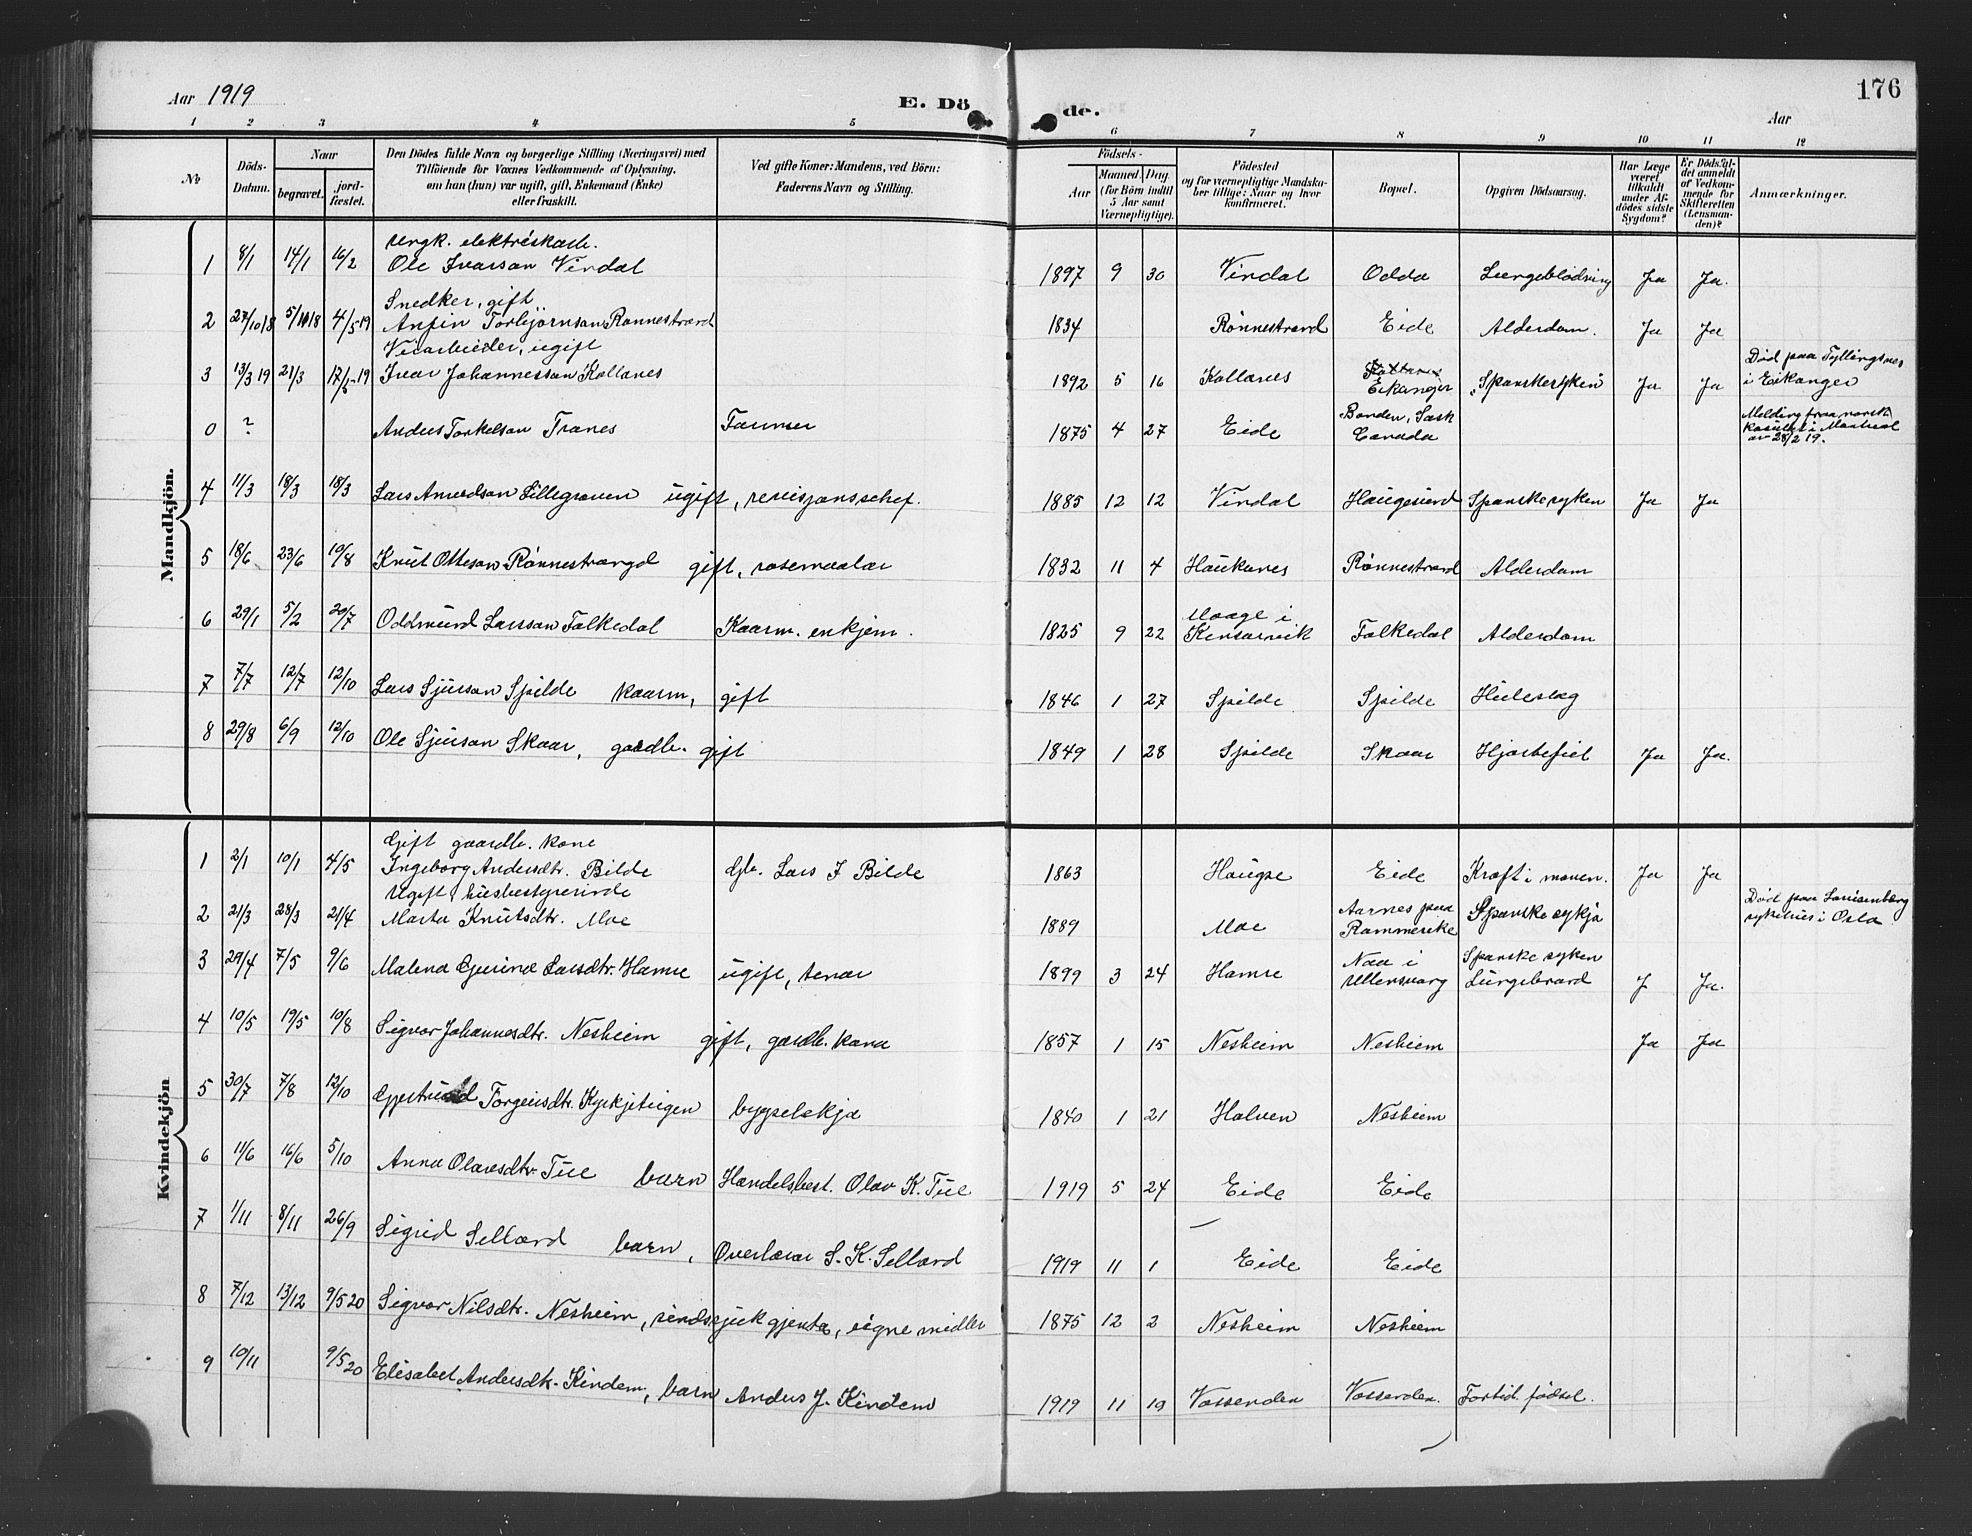 Aar 1919
E. Döde.
Aar
176
1 2 3 4 5 6 7 8 9 10 11 12
No
Döds-Datum.
Naar
begravet.
jord-fæstet.
Den Dödes fulde Navn og borgerlige Stilling (Næringsvei) med
Tilföiende for Voxnes Vedkommende af Oplysning,
om han (hun) var ugift, gift, Enkemand (Enke)
eller fraskilt.
Ved gifte Koner: Mandens, ved Börn:
Faderens Navn og Stilling.
Födsels-
Aar
Maaned. Dag.
(for Börn indtil
5 Aar samt
Værnepligtige).
Födested
og for værnepligtige Mandska-
ber tillige: Naar og hvor
konfirmeret.
Bopæl.
Opgiven Dödsaarsag.
Har Læge
været
tilkaldt
under Af-
dödes sidste
Sygdom?
Er Dödsfal-
det anmeldt
af Vedkom-
mende for
Skifteretten
(Lensman-
den)?
Anmærkninger.
Mandkjön.
Ungk. elektriskarb.
1 8/1 14/1 16/2 Ole Ivarson Vindal 1897 9 30 Vindal Odda Lungeblödning Ja Ja.
Snedker, gift
2 27/10 18 5/11 18 4/5-19 Anfin Torbjörnson Rønnestrand 1834 Rønnestrand Eide Alderdom. Ja Ja
Veiarbeider, ugift
3 13/3 19 21/3 17/6-19 Ivar Johannesson Kollanes 1892 5 16 Kollanes Eikanger "Spanskesyken" Ja Ja Død paa Tyllingsnes
i Eikanger
0 ? Anders Torkelson Tranes Farmer 1875 4 27 Eide Borden, Sask
Canada
Melding fraa norsk
konsulat i Montreal
av 28/2 19.
4 11/3 18/3 18/3 Lars Amundson Lillegraven ugift, revisjonsschef. 1885 12 12 Vindal Haugesund Spanskesyken Ja Ja
5 18/6 23/6 10/8 Knut Otteson Rønnestrand gift, rosemaalar 1832 11 4 Haukanes Rønnestrand Alderdom
6 29/1 5/2 20/7 Oddmund Larsson Folkedal Kaarm. enkjem. 1825 9 22 Maage i
Kinsarvik Folkedal Alderdom
7 7/7 12/7 12/10 Lars Sjurson Spilde kaarm, gift 1846 1 27 Spilde Spilde Hjleslag
8 29/8 6/9 12/10 Ole Sjurson Skaar, gardb. gift 1849 1 28 Spilde Skaar Hjartefeil Ja Ja.
Kvindekjön
Gift gaardb. kone
1 2/1 10/1 4/5 Ingeborg Andersdtr. Bilde Gb. Lars J Bilde 1863 Haugse Eide Kræft i maven. Ja Ja
Ugift, husbestyrerinde
2 21/3 28/3 21/4 Marta Knutsdtr. Moe 1889 Moe Aarnes paa
Rommerike Spanske sykja Død paa
sykehus i Oslo
3 29/4 7/5 9/6 Malena Gjurina Larsdtr. Hamre ugift, tenar 1899 3 24 Hamre Naa i
Ullensvang Spanske syken
Lungebrand J Ja.
4 10/5 19/5 10/8 Sigvor Johannesdtr. Nesheim gift, gardb. kona 1857 1 15 Nesheim Nesheim Ja Ja
5 30/7 7/8 12/10 Gjertrud Torgeirsdtr. Kyrkjeteigen bygselskja 1840 1 21 Halven Nesheim
6 11/6 16/6 5/10 Anna Olavsdtr. Tue barn Handelsbest. Olav K. Tue 1919 5 24 Eide Eide
7 1/11 8/11 26/9 Sigrid Selland barn, Overlærar S. K. Selland 1919 11 1 Eide Eide
8 7/12 13/12 9/5 20 Sigvor Nilsdtr. Nesheim, sindssjuk gjenta, eigne midler 1875 12 2 Nesheim Nesheim
9 10/11 9/5 20 Elisabet Andersdtr. Kindem, barn Anders J. Kindem 1919 11 10 Vossenden Vossenden. Fortid. fødsel.